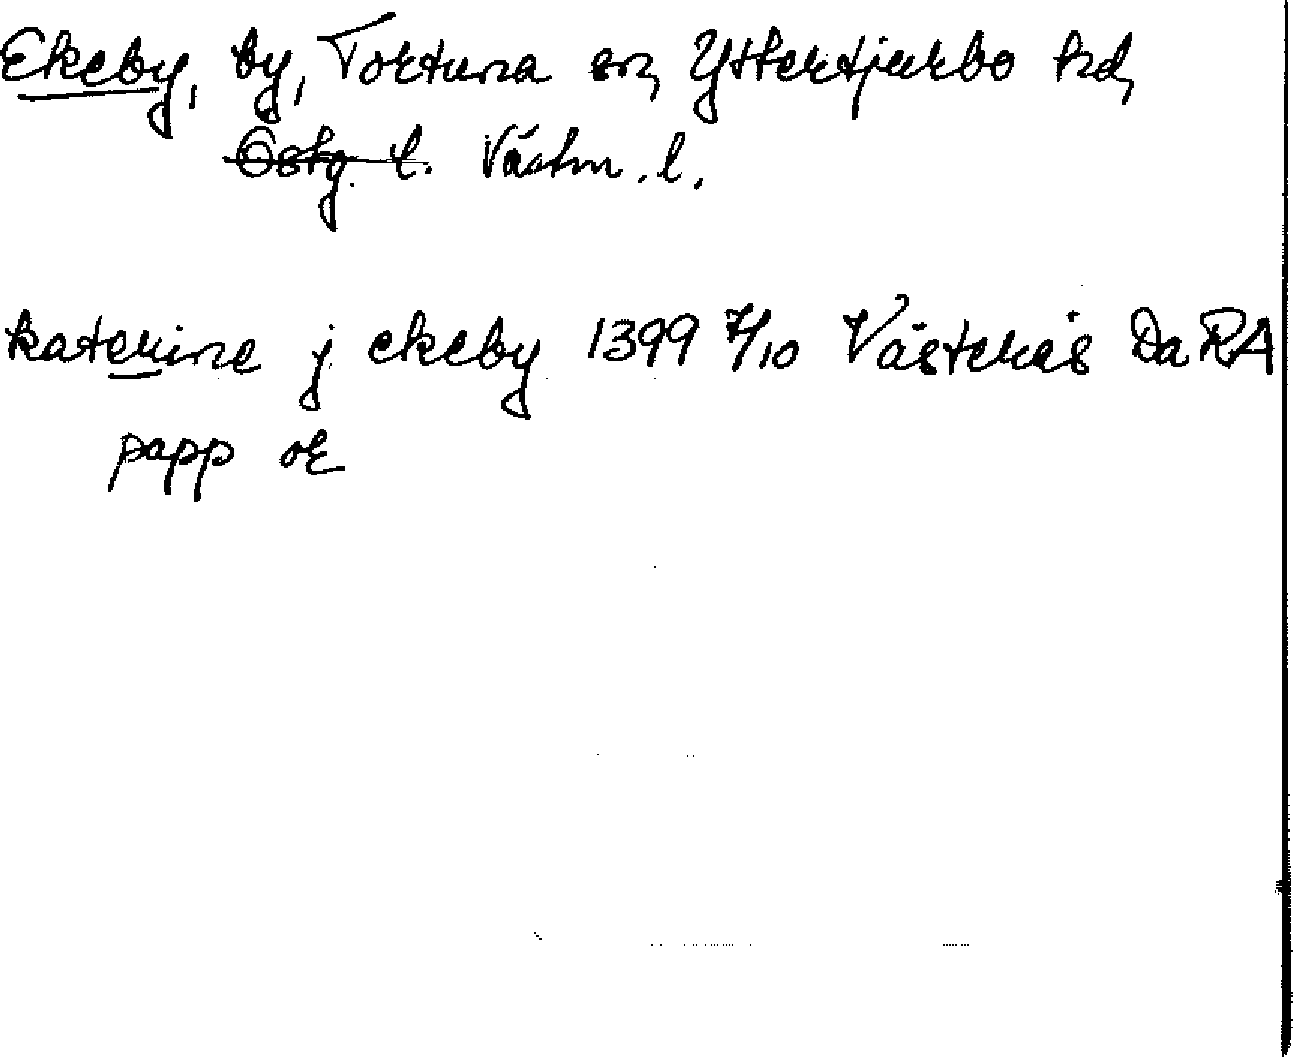 Ekeby, by, Tortuna sn, Yttertjurbo hd,
Östg. l. Västm. l.
katerine j ekeby 1399 7/10 Västerås Da RA
papp or